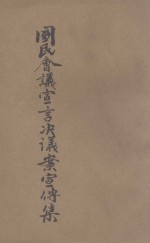 國民會議宣言決議案宣傳集